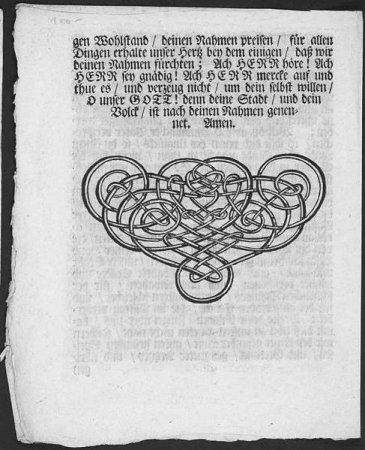 gen Wohlstand / deinen Nahmen preisen / für allen
Dingen erhalte unser Hertz bey dem einigen / daß wir
deinen Nahmen fürchten; Ach HERR höre! Ach
HERR sey gnädig! Ach HERR mercke auf und
thue es / und verzeug nicht / um dein selbst willen /
O unser GOTT! denn deine Stadt / und dein
Volck / ist nach deinen Nahmen genen-
net. Amen.